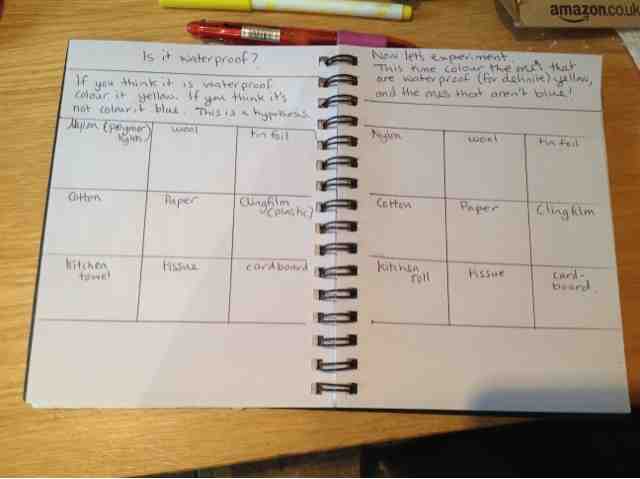 amazon.co.uk
Is it waterproof?
If you think it is waterproof
colour it yellow. If you think it's
not colour it blue. This is a hypothesis.
Nylon (polymer) wool tin foil
Cotton Paper Clingfilm
(plastic)
Kitchen tissue cardboard
towel
Now let's experiment.
This time colour the ones that
are waterproof (for definite) yellow,
and the ones that aren't blue!
Nylon wool tin foil
Cotton Paper Clingfilm
Kitchen tissue card-
roll board.